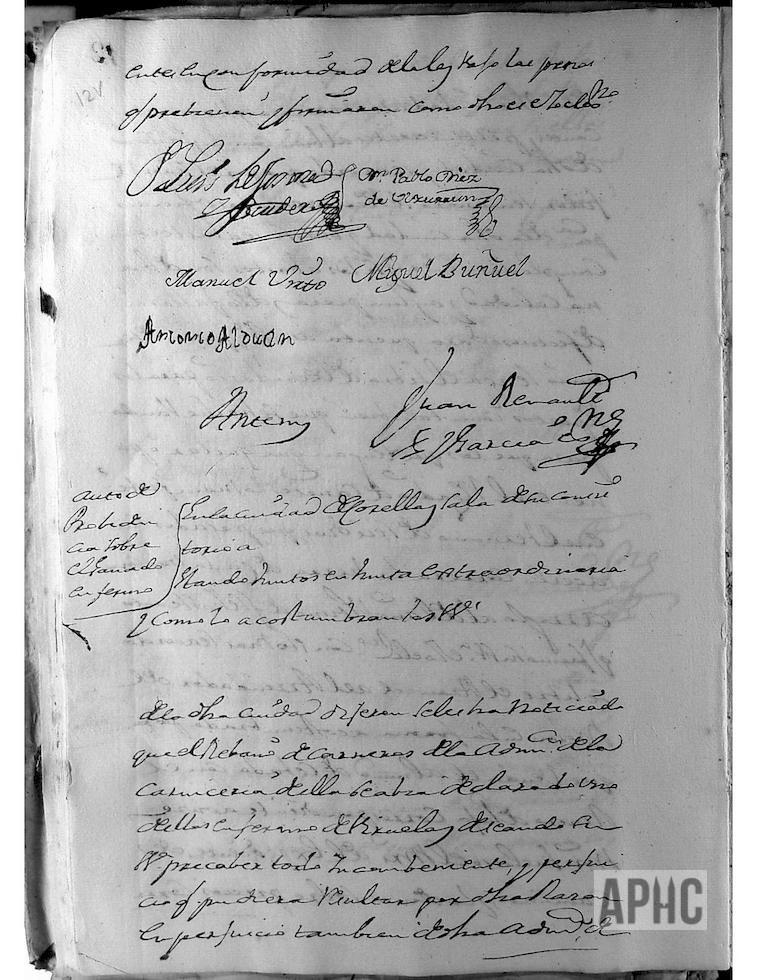 12v
en conformidad de la ley vajo las penas
q prebienen y firmaron como dho es
Dn Luis Sesma
y Escudero
Mn Pablo
de
Manuel
Miguel Buñuel
Antonio Alduan
Ante mi
Juan Renault
y Garcia es.no
auto de
Probiden
cia sobre
el Ganado
enfermo
En la ciudad de Corella y sala de su Consis
torio a
estando Juntos en Junta extraordinaria
y como lo acostumbran los SS.s
de la dha ciudad dijeron se les ha noticiado
que el Rebaño de Carneros de la Admon de la
Carniceria de ella se abia declarado uno
de ellos enfermo de Viruela y deseando su
precaber todo Incombeniente, y perjui
cio q pudiera Resultar por dha Razon
en perjuicio tambien de dha Admon
APHC